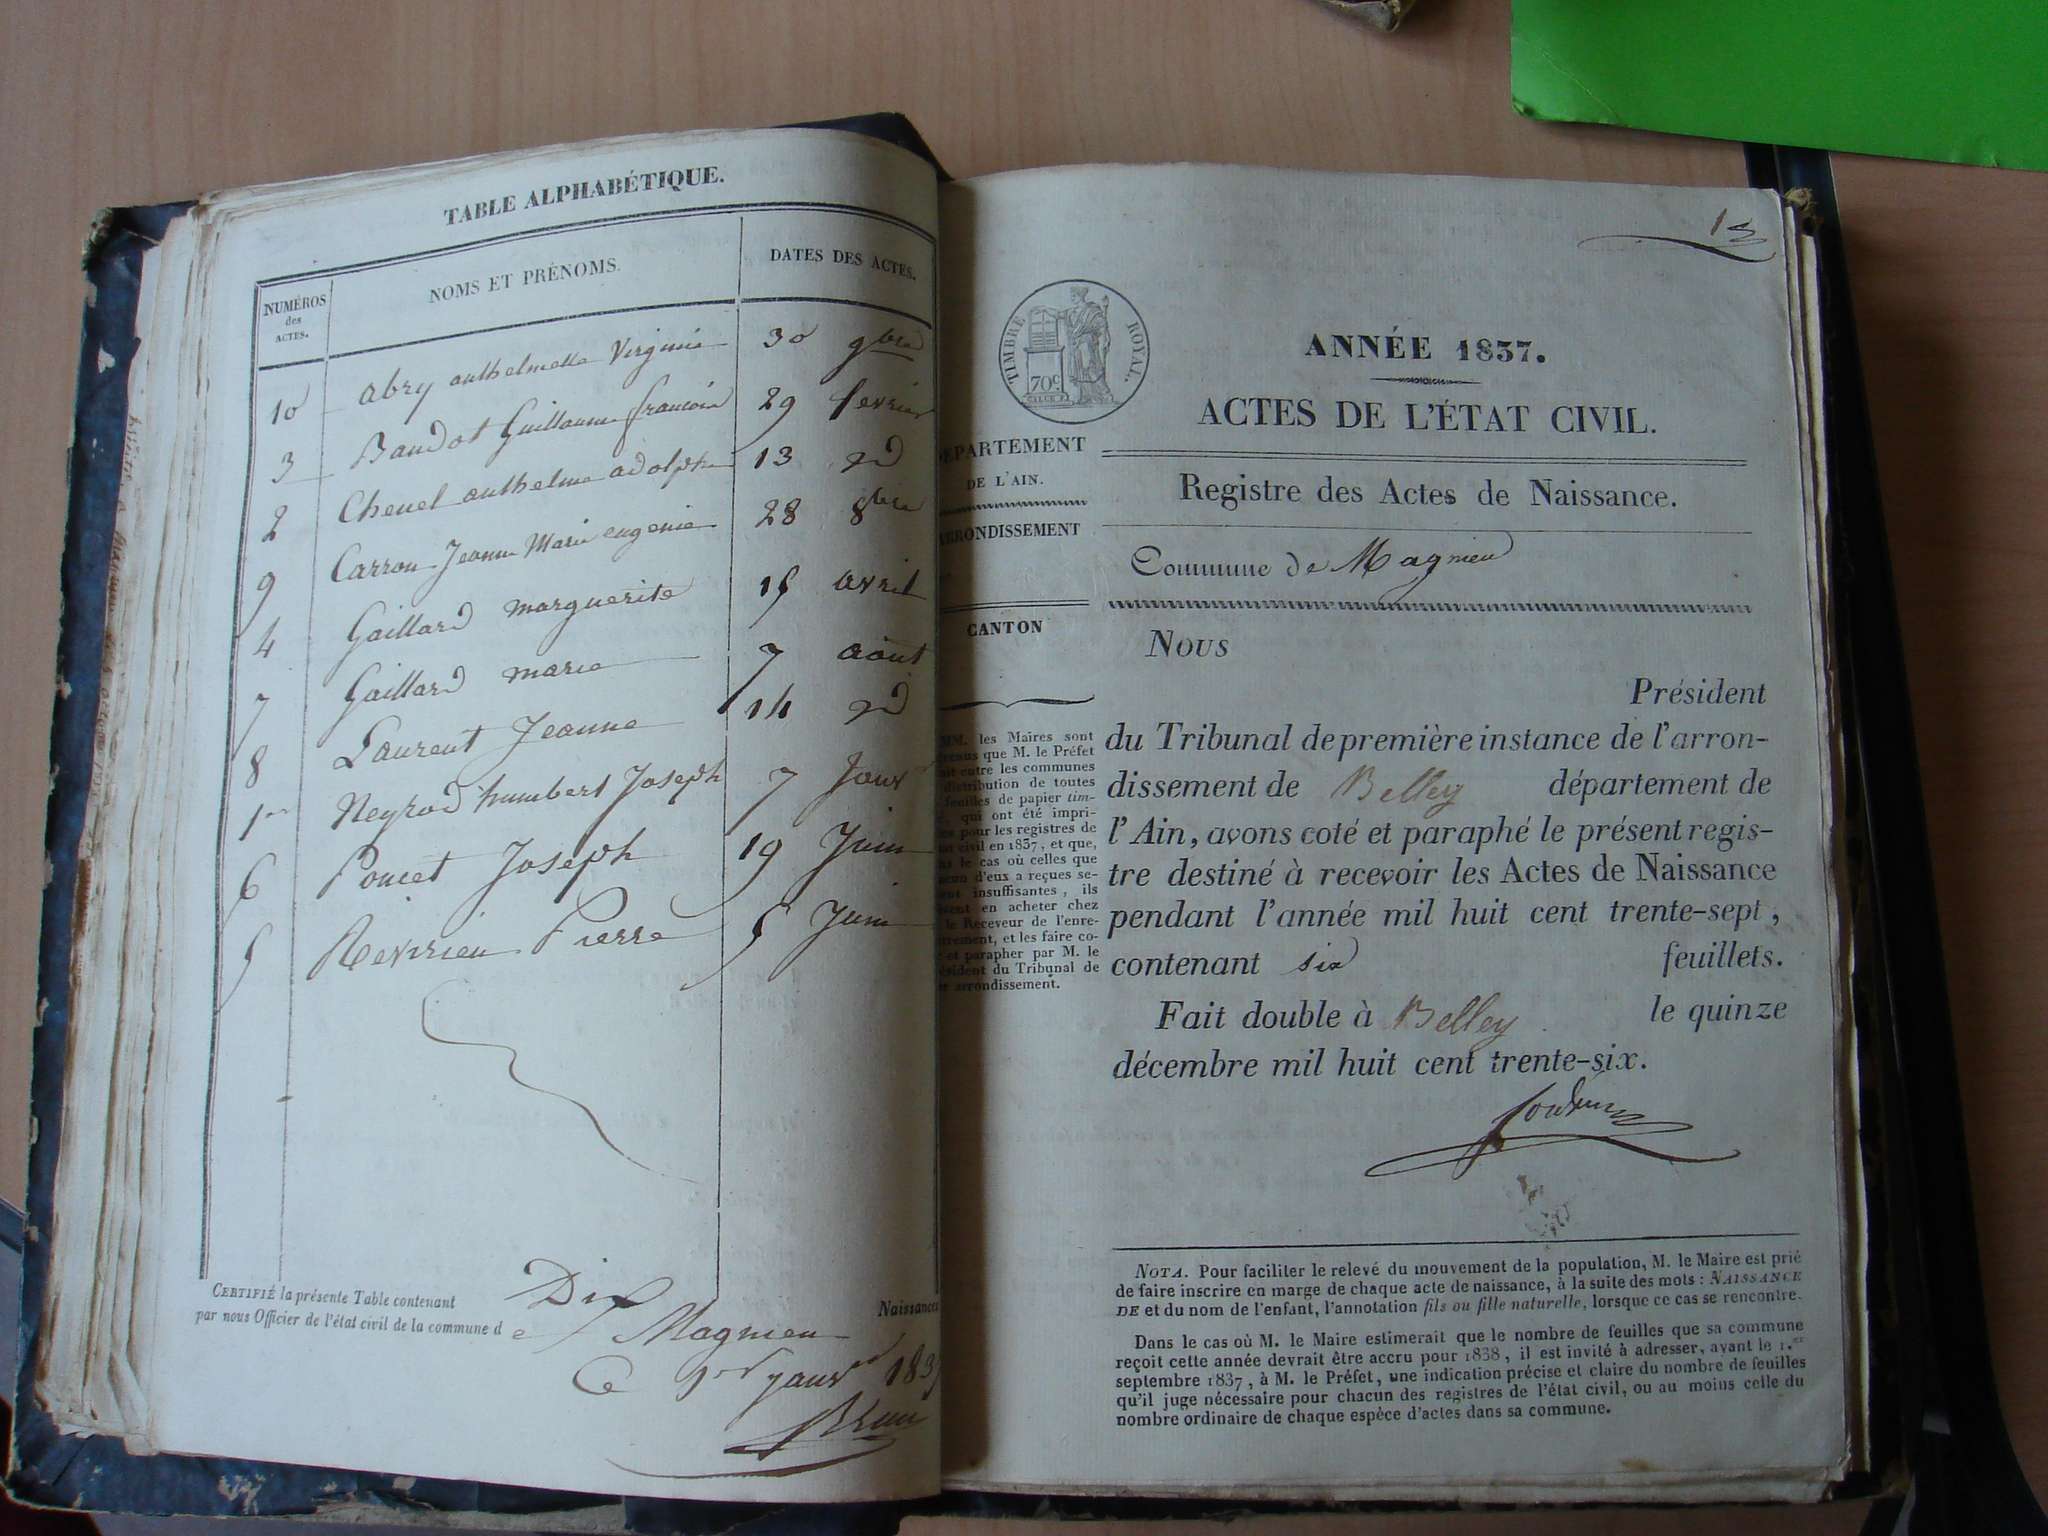 TABLE ALPHABÉTIQUE.
NUMÉROS des ACTES. NOMS ET PRÉNOMS. DATES DES ACTES.
10 abry anthelmette Virginie 30 9bre
3 Baudot Guillaume françois 29 fevrier
2 Chenel anthelme adolphe 13 id
9 Carron Jeanne Marie eugenie 28 8bre
4 Gaillard marguerite 15 avril
7 Gaillard marie 7 août
8 Laurent Jeanne 14 id
1er Neyrod humbert Joseph 7 Janvr
6 Poncet Joseph 19 Juin
5 Revirieu Pierre 5 Juin
CERTIFIÉ la présente Table contenant Dix Naissances
par nous Officier de l'état civil de la commune d e Magnieu
Ce 1er janvier 183
Brun
TIMBRE ROYAL.
70c
ANNÉE 1837.
ACTES DE L'ÉTAT CIVIL.
DÉPARTEMENT
DE L'AIN.
ARRONDISSEMENT
CANTON
MM. les Maires sont
que M. le Préfet
entre les communes
distribution de toutes
feuilles de papier tim-
qui ont été impri-
pour les registres de
civil en 1837, et que,
le cas où celles que
d'eux a reçues se-
insuffisantes, ils
en acheter chez
le Receveur de l'enre-
et les faire co-
et parapher par M. le
Président du Tribunal de
arrondissement.
Registre des Actes de Naissance.
Commune de Magnieu
Nous
Président
du Tribunal de première instance de l'arron-
dissement de Belley département de
l'Ain, avons coté et paraphé le présent regis-
tre destiné à recevoir les Actes de Naissance
pendant l'année mil huit cent trente-sept,
contenant six feuillets.
Fait double à Belley le quinze
décembre mil huit cent trente-six.
NOTA. Pour faciliter le relevé du mouvement de la population, M. le Maire est prié
de faire inscrire en marge de chaque acte de naissance, à la suite des mots : NAISSANCE
DE et du nom de l'enfant, l'annotation fils ou fille naturelle, lorsque ce cas se rencontre.
Dans le cas où M. le Maire estimerait que le nombre de feuilles que sa commune
reçoit cette année devrait être accru pour 1838, il est invité à adresser, avant le 1.er
septembre 1837, à M. le Préfet, une indication précise et claire du nombre de feuilles
qu'il juge nécessaire pour chacun des registres de l'état civil, ou au moins celle du
nombre ordinaire de chaque espèce d'actes dans sa commune.